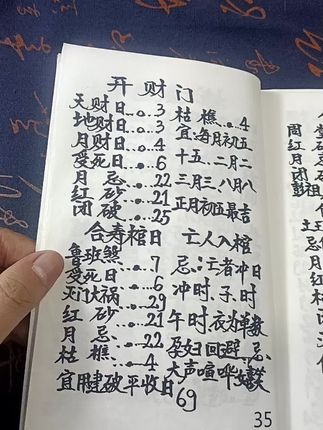 开财门
天财日...3
地财日...3
月财日...4
受死日...6
月忌...22
红砂...21
团破...25
枯樵...4
宜:每月初五
十五、二月二
三月三八月八
正月初五最吉
合寿棺日
鲁班煞...7
受死日...6
灭门大祸...29
红砂...21
月忌...22
枯樵...4
宜用建破平收日69
亡人入棺
忌:亡者冲日
冲时、子、时
午时衣为单数
孕妇回避、忌
大声喧哗
35
周
红
月
彭祖